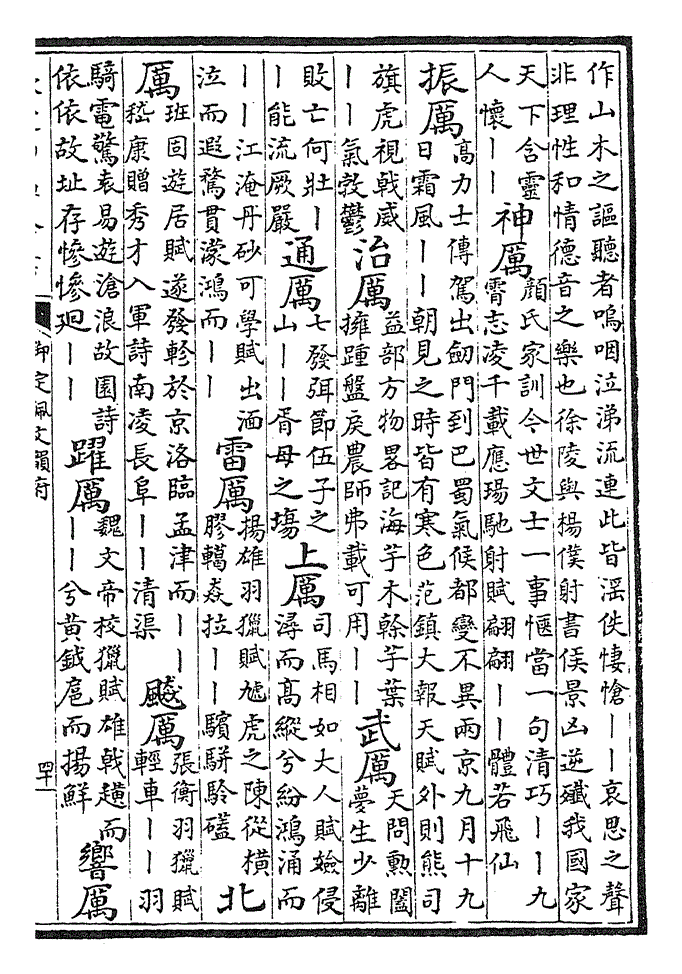 作山木之謳聽者嗚咽泣涕流連此皆淫佚悽愴——哀思之聲
非理性和情德音之樂也徐陵與楊僕射書侯景凶逆殲我國家
天下含靈
人懷——
神厲
顏氏家訓今世文士一事愜當一句清巧——九
霄志凌千載應瑒馳射賦翩翩——體若飛仙
振厲
高力士傳駕出劒門到巴蜀氣候都變不異兩京九月十九
日霜風——朝見之時皆有寒色范鎮大報天賦外則熊司
旗虎視戟威
——氣敦鬱
治厲
益部方物畧記海芋木榦芋葉
擁踵盤戾農師弗載可用——
武厲
天問勲闔
夢生少離
敗亡何壯—
—能流厥嚴
通厲
七發弭節伍子之
山——胥母之塲
上厲
司馬相如大人賦嬐侵
潯而高縱兮紛鴻涌而
——江淹丹砂可學賦出湎
泣而遐騖貫濛鴻而——
雷厲
揚雄羽獵賦虓虎之陳從橫
膠轕猋拉——驞駍駖磕
北
厲
班固遊居賦遂發軫於京洛臨孟津而——
嵇康贈秀才入軍詩南凌長阜——清渠
飇厲
張衡羽獵賦
輕車——羽
騎電驚袁易遊滄浪故園詩
依依故址存慘慘廻——
躍厲
魏文帝校獵賦雄戟趪而
——兮黃鉞扈而揚鮮
響厲
御定佩文韻府
四十